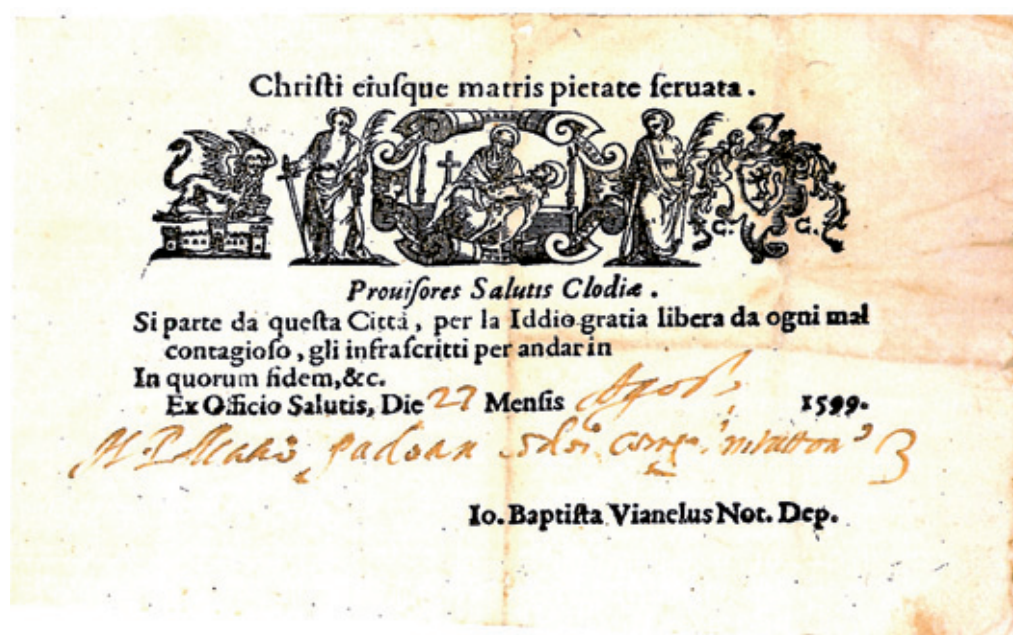 Chriſti eiuſque matris pietate ſeruata.
C. G.
Prouiſores Salutis Clodiæ.
Si parte da queſta Città, per la Iddio gratia libera da ogni mal
contagioſo, gli infraſcritti per andar in
In quorum fidem, &c.
Ex Officio Salutis, Die 27 Menſis Agoſ. 1599.
padoan
Io. Baptiſta Vianelus Not. Dep.